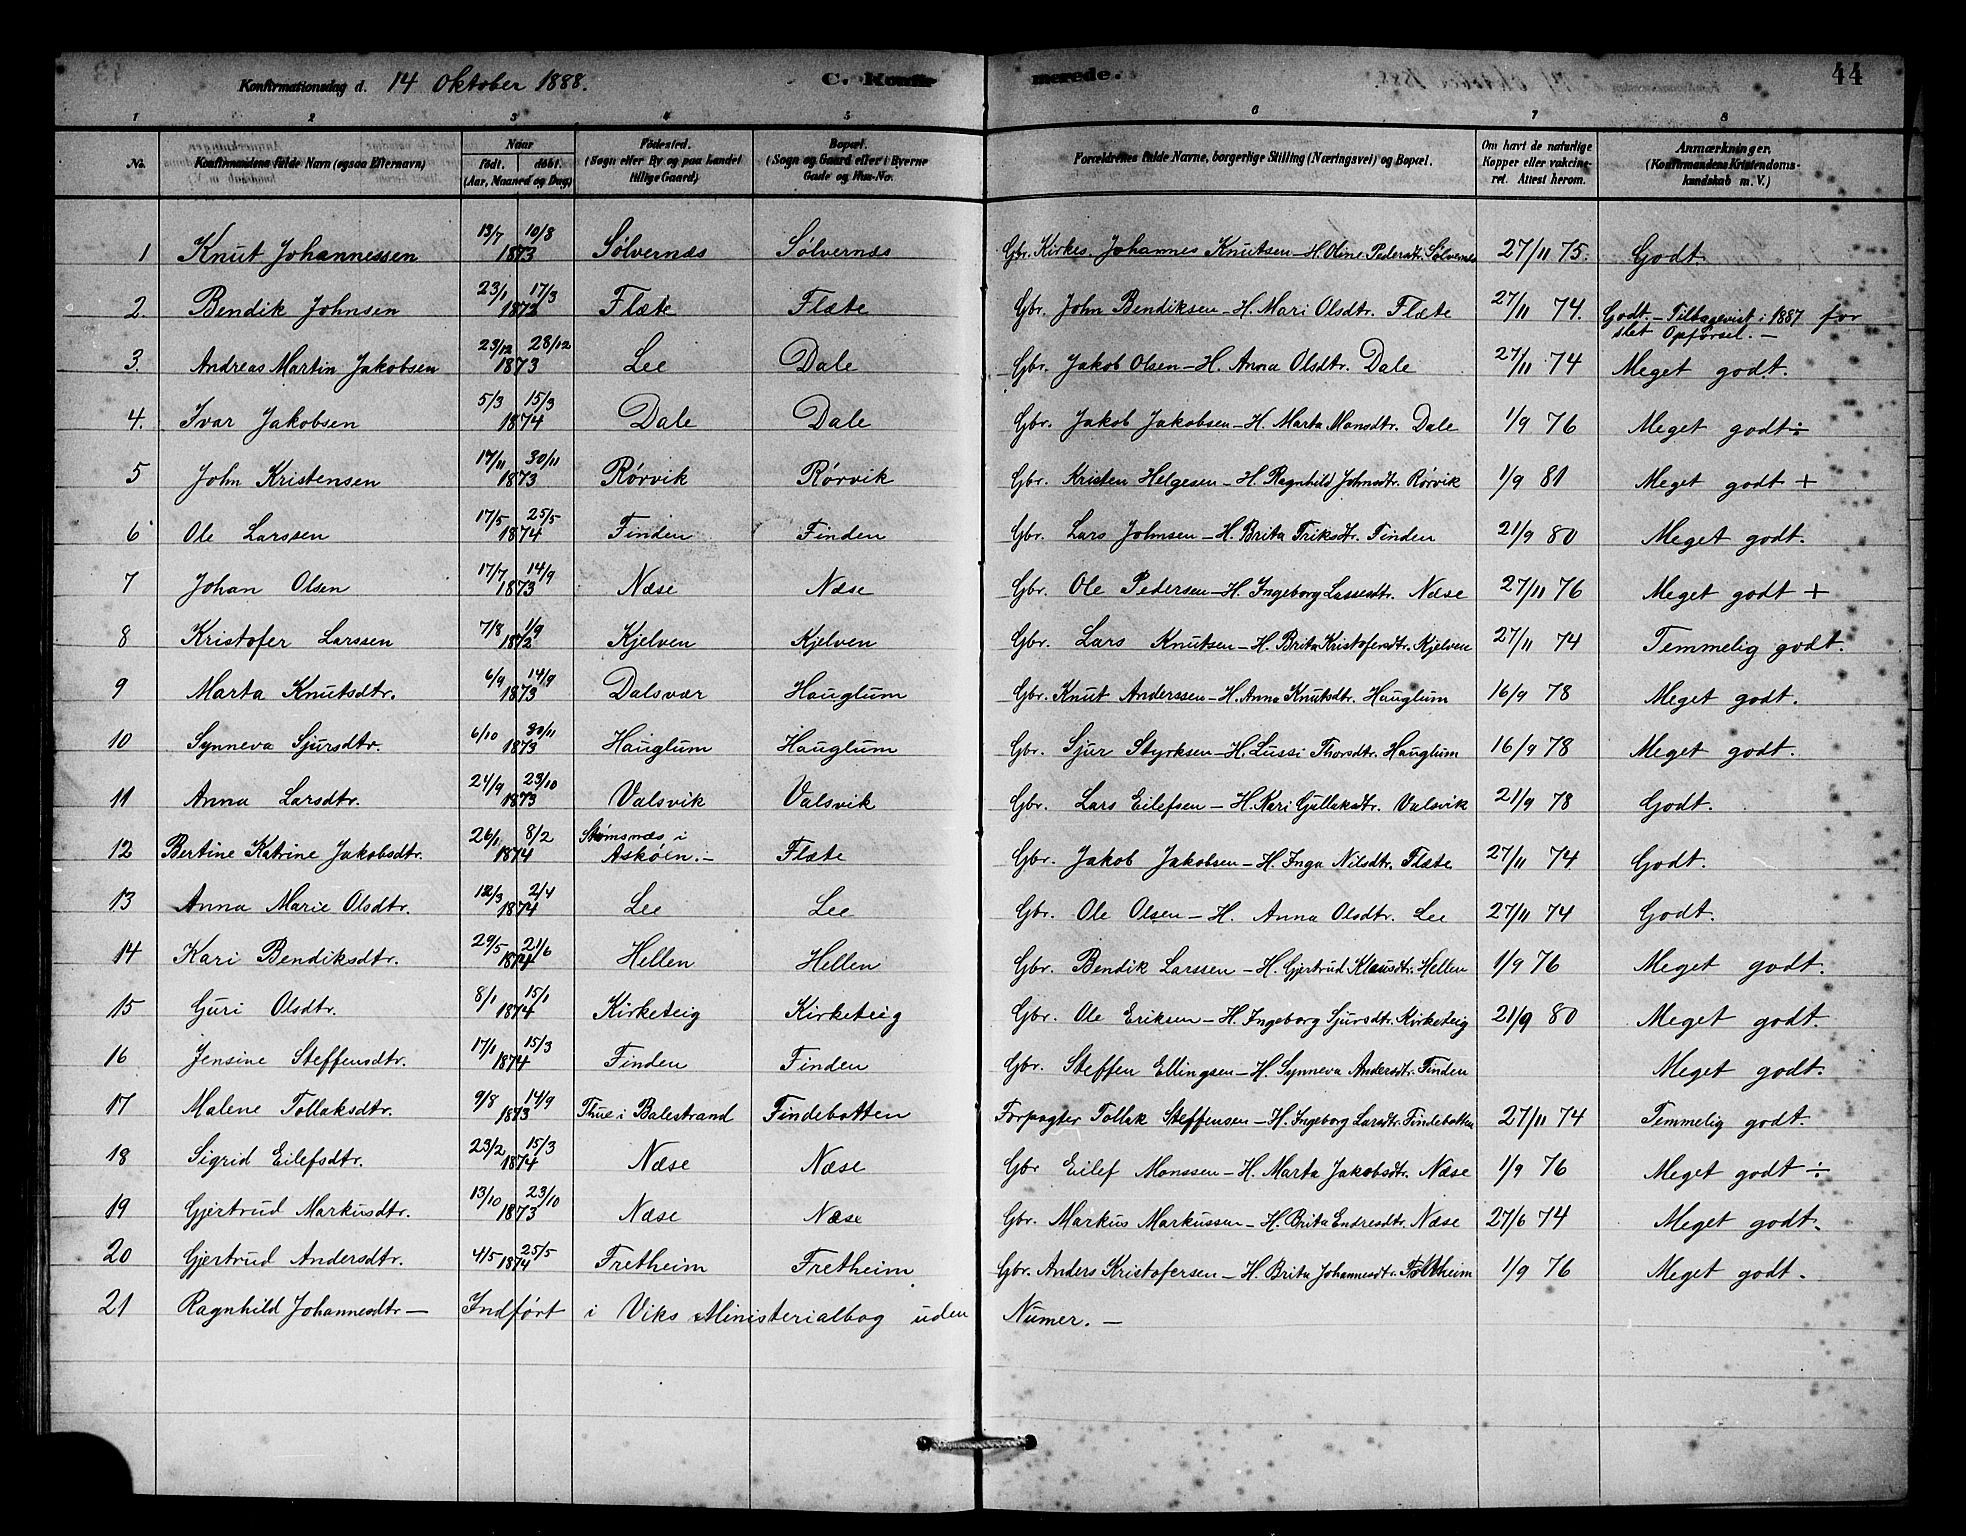 Konfirmationsdag d. 14 Oktober 1888. C. Konfirmerede. 44
1 2 3 4 5 6 7 8
No. Konfirmandens fulde Navn (ogsaa Efternavn) Naar født. døbt. (Aar, Maaned og Dag) Fødested. (Sogn eller By og paa Landet tillige Gaard) Bopæl. (Sogn og Gaard eller i Byerne Gade og Hus-No. Forældrenes fulde Navne, borgerlige Stilling (Næringsvei) og Bopæl. Om havt de naturlige Kopper eller vaccineret. Attest herom. Anmærkninger. (Konfirmandens Kristendomskundskab m. V.)
1 Knut Johannessen 13/7 10/8 1873 Sølvernæs Sølvernæs Gbr. Kirkes. Johannes Knutsen – H. Oline Pedersdtr. Sølvernæs 27/11 75. Godt.
2. Bendik Johnsen 23/1 17/3 1873 Flæte Flæte Gbr. John Bendiksen – H. Mari Olsdtr. Flæte 27/11 74. Godt. – Tilbagevist i 1887 for slet Opførsel. –
3. Andreas Martin Jakobsen 23/12 28/12 1873 Lee Dale Gbr. Jakob Olsen – H. Anna Olsdtr. Dale 27/11 74 Meget godt.
4. Ivar Jakobsen 5/3 15/3 1874 Dale Dale Gbr. Jakob Jakobsen – H. Marta Monsdtr. Dale 1/9 76 Meget godt ÷
5 John Kristensen 17/11 30/11 1873 Rørvik Rørvik Gbr. Kristen Helgesen – H. Ragnhild Johnsdtr. Rørvik 1/9 81 Meget godt +
6 Ole Larssen 17/5 25/5 1874 Finden Finden Gbr. Lars Johnsen – H. Brita Eriksdtr. Finden 21/9 80 Meget godt.
7 Johan Olsen 17/7 14/9 1873 Næse Næse Gbr. Ole Pedersen – H. Ingeborg Lassesdtr. Næse 27/11 76 Meget godt +
8 Kristofer Larssen 7/8 1/9 1872 Kjelven Kjelven Gbr. Lars Knutsen – H. Brita Kristofersdtr. Kjelven 27/11 74 Temmelig godt.
9 Marta Knutsdtr. 6/9 14/9 1873 Dalsvær Hauglum Gbr. Knut Anderssen – H. Anna Knutsdtr. Hauglum 16/9 78 Meget godt.
10 Synneva Sjursdtr. 6/10 30/11 1873 Hauglum Hauglum Gbr. Sjur Styrksen – H. Lussi Thorsdtr. Hauglum 16/9 78 Meget godt.
11 Anna Larsdtr. 24/9 23/10 1873 Valsvik Valsvik Gbr. Lars Eilefsen – H. Kari Gullaksdtr. Valsvik 21/9 78 Godt.
12 Bertine Katrine Jakobsdtr. 26/1 8/2 1874 Stømsnæs i Askøen. – Flæte Gbr. Jakob Jakobsen – H. Inga Nilsdtr. Flæte 27/11 74 Godt.
13 Anna Marie Olsdtr. 12/3 2/4 1874 Lee Lee Gbr. Ole Olsen – H. Anna Olsdtr. Lee 27/11 74 Godt.
14 Kari Bendiksdtr. 29/5 21/6 1874 Hellen Hellen Gbr. Bendik Larssen – H. Gjertrud Klausdtr. Hellen 1/9 76 Meget godt.
15 Guri Olsdtr. 8/1 15/1 1874 Kirketeig Kirketeig Gbr. Ole Eriksen – H. Ingeborg Sjursdtr. Kirketeig 21/9 80 Meget godt.
16 Jensine Steffensdtr. 17/1 15/3 1874 Finden Finden Gbr. Steffen Ellingsen – H. Synneva Andersdtr. Finden Meget godt.
17 Malene Tollaksdtr. 9/8 14/9 1873 Thue i Balestrand Findebotten Forpagter Tollak Steffensen – H. Ingeborg Larsdtr. Findebotten 27/11 74 Temmelig godt.
18 Sigrid Eilefsdtr. 23/2 15/3 1874 Næse Næse Gbr Eilef Monssen – H. Marta Jakobsdtr. Næse 1/9 76 Meget godt ÷
19 Gjertrud Markusdtr. 13/10 23/10 1873 Næse Næse Gbr. Markus Markussen – H. Brita Endresdtr. Næse 27/6 74 Meget godt.
20 Gjertrud Andersdtr. 4/5 25/5 1874 Fretheim Fretheim Gbr. Anders Kristofersen – H. Brita Johannesdtr. 1/9 76 Meget godt.
21 Ragnhild Johannesdtr – Indført i Viks Ministerialbog uden Numer. –